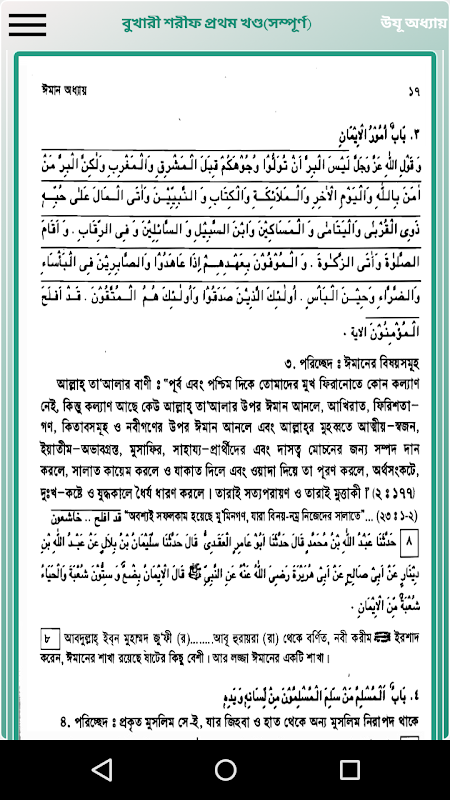 বুখারী শরীফ প্রথম খণ্ড(সম্পূর্ণ)
উযূ অধ্যায়
ঈমান অধ্যায়
১৭
٣. بَابُ أُمُوْرُ الْاِيْمَانِ
وَقَوْلِ اللّٰهِ عَزَّ وَجَلَّ لَيْسَ الْبِرَّ اَنْ تُوَلُّوْا وُجُوْهَكُمْ قِبَلَ الْمَشْرِقِ وَالْمَغْرِبِ وَلٰكِنَّ الْبِرَّ مَنْ
اٰمَنَ بِاللّٰهِ وَالْيَوْمِ الْاٰخِرِ وَالْمَلَائِكَةِ وَالْكِتَابِ وَ النَّبِيِّيْنَ وَاٰتَى الْمَالَ عَلٰى حُبِّهٖ
ذَوِى الْقُرْبٰى وَالْيَتَامٰى وَ الْمَسَاكِيْنَ وَابْنَ السَّبِيْلِ وَ السَّائِلِيْنَ وَ فِى الرِّقَابِ . وَ اَقَامَ
الصَّلٰوةَ وَاٰتَى الزَّكٰوةَ . وَ الْمُوْفُوْنَ بِعَهْدِهِمْ اِذَا عَاهَدُوْا وَالصَّابِرِيْنَ فِى الْبَأْسَاءِ
وَالضَّرَّاءِ وَحِيْنَ الْبَأْسِ . اُولٰئِكَ الَّذِيْنَ صَدَقُوْا وَاُولٰئِكَ هُمُ الْمُتَّقُوْنَ . قَدْ اَفْلَحَ
الْمُؤْمِنُوْنَ الاية .
৩. পরিচ্ছেদ : ঈমানের বিষয়সমূহ
আল্লাহ্ তা'আলার বাণী : "পূর্ব এবং পশ্চিম দিকে তোমাদের মুখ ফিরানোতে কোন কল্যাণ
নেই, কিন্তু কল্যাণ আছে কেউ আল্লাহ্ তা'আলার উপর ঈমান আনলে, আখিরাত, ফিরিশতা-
গণ, কিতাবসমূহ ও নবীগণের উপর ঈমান আনলে এবং আল্লাহ্‌র মুহব্বতে আত্মীয়-স্বজন,
ইয়াতীম-অভাবগ্রস্ত, মুসাফির, সাহায্য-প্রার্থীদের এবং দাসত্ব মোচনের জন্য সম্পদ দান
করলে, সালাত কায়েম করলে ও যাকাত দিলে এবং ওয়াদা দিয়ে তা পূরণ করলে, অর্থসংকটে,
দুঃখ-কষ্টে ও যুদ্ধকালে ধৈর্য ধারণ করলে । তারাই সত্যপরায়ণ ও তারাই মুত্তাকী ।" (২ : ১৭৭)
قد افلح .. خاشعون "অবশ্যই সফলকাম হয়েছে মু'মিনগণ, যারা বিনয়-নম্র নিজেদের সালাতে"... (২৩ : ১-২)
٨ حَدَّثَنَا عَبْدُ اللّٰهِ بْنُ مُحَمَّدٍ قَالَ حَدَّثَنَا اَبُوْ عَامِرٍ الْعَقَدِىُّ قَالَ حَدَّثَنَا سُلَيْمَانُ بْنُ بِلَالٍ عَنْ عَبْدِ اللّٰهِ بْنِ
دِيْنَارٍ عَنْ اَبِىْ صَالِحٍ عَنْ اَبِىْ هُرَيْرَةَ رَضِىَ اللّٰهُ عَنْهُ عَنِ النَّبِيِّ ﷺ قَالَ الْاِيْمَانُ بِضْعٌ وَ سِتُّوْنَ شُعْبَةً وَالْحَيَاءُ
شُعْبَةٌ مِّنَ الْاِيْمَانِ .
৮ আবদুল্লাহ্ ইব্‌ন মুহাম্মদ জু'ফী (র).......আবূ হুরায়রা (রা) থেকে বর্ণিত, নবী করীম ﷺ ইরশাদ
করেন, ঈমানের শাখা রয়েছে ষাটের কিছু বেশী । আর লজ্জা ঈমানের একটি শাখা ।
٤. بَابُ اَلْمُسْلِمُ مَنْ سَلِمَ الْمُسْلِمُوْنَ مِنْ لِسَانِهٖ وَيَدِهٖ
৪. পরিচ্ছেদ : প্রকৃত মুসলিম সে-ই, যার জিহবা ও হাত থেকে অন্য মুসলিম নিরাপদ থাকে